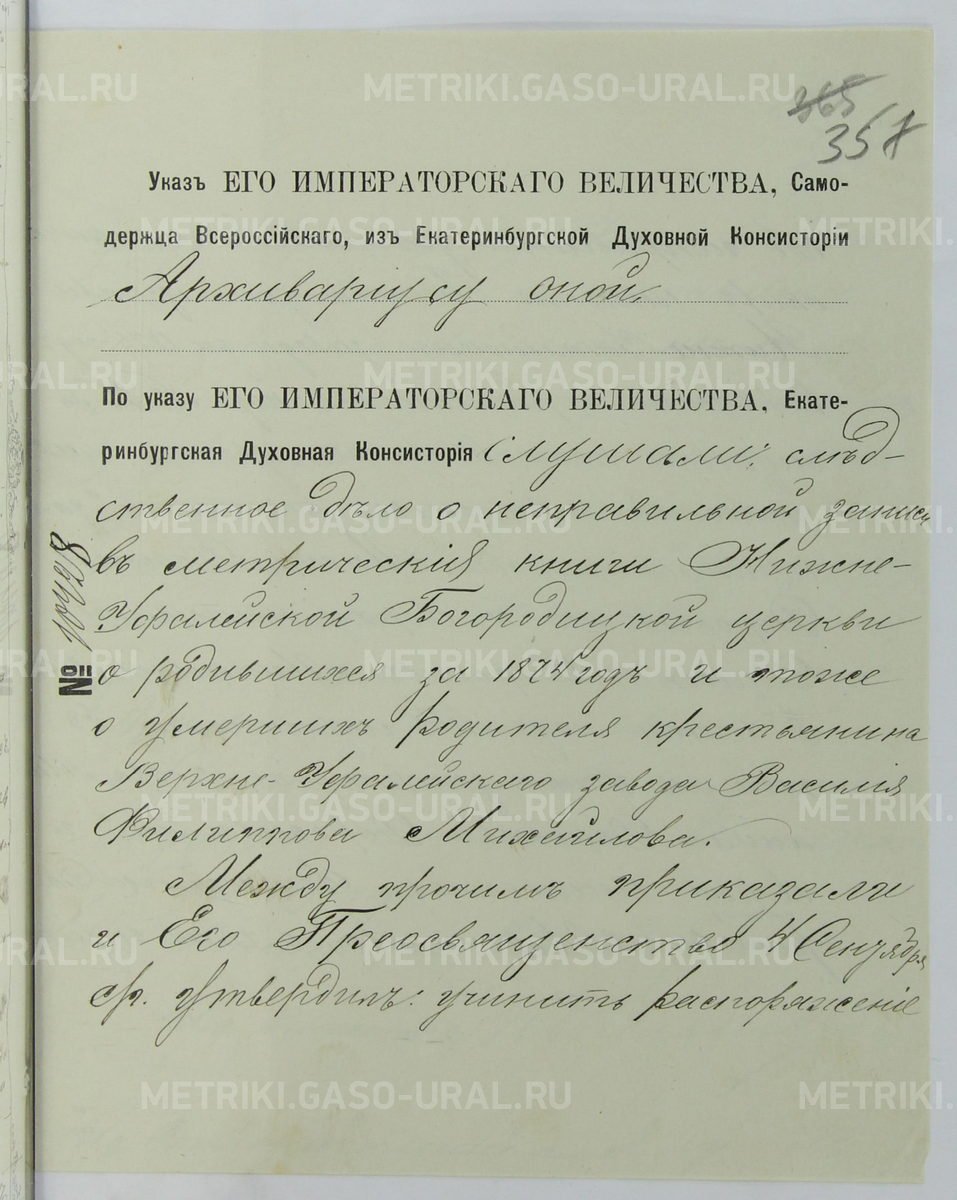 365
358
Указъ ЕГО ИМПЕРАТОРСКАГО ВЕЛИЧЕСТВА, Само-
держца Всероссійскаго, изъ Екатеринбургской Духовной Консисторіи
Архиваріусу оной.
По указу ЕГО ИМПЕРАТОРСКАГО ВЕЛИЧЕСТВА, Екате-
ринбургская Духовная Консисторія Слушали: слѣд-
ственное дѣло о неправильной записи
въ метрическія книги Нижне-
Уфалейской Богородицкой церкви
о родившихся за 1874 годъ и тоже
о умершихъ родителя крестьянина
Верхне-Уфалейскаго завода Василія
Филиппова Михайлова.
Между прочимъ приказали
и Его Преосвященство 4 Сентября
с/г. утвердилъ: учинить распоряженіе
№
METRIKI.GASO-URAL.RU